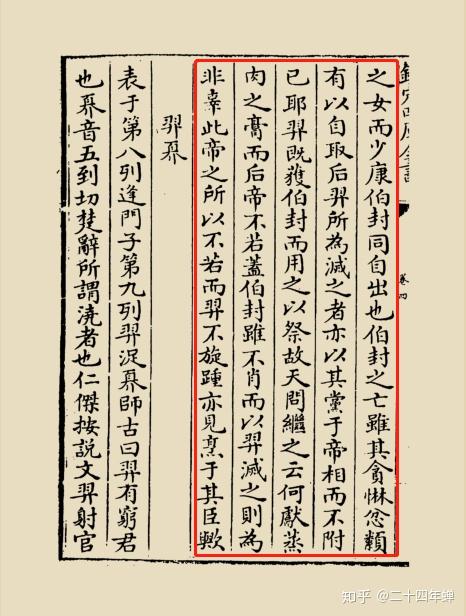 之女而少康伯封同自出也伯封之亡雖其貪惏忿纇
有以自取后羿所為滅之者亦以其黨于帝相而不附
已耶羿既獲伯封而用之以祭故天問繼之云何獻蒸
肉之膏而后帝不若蓋伯封雖不肖而以羿滅之則為
非辜此帝之所以不若而羿不旋踵亦見烹于其臣歟
羿奡
表于第八列逢門子第九列羿浞奡師古曰羿有窮君
也奡音五到切楚辭所謂澆者也仁傑按説文羿射官
知乎 @二十四年蝉